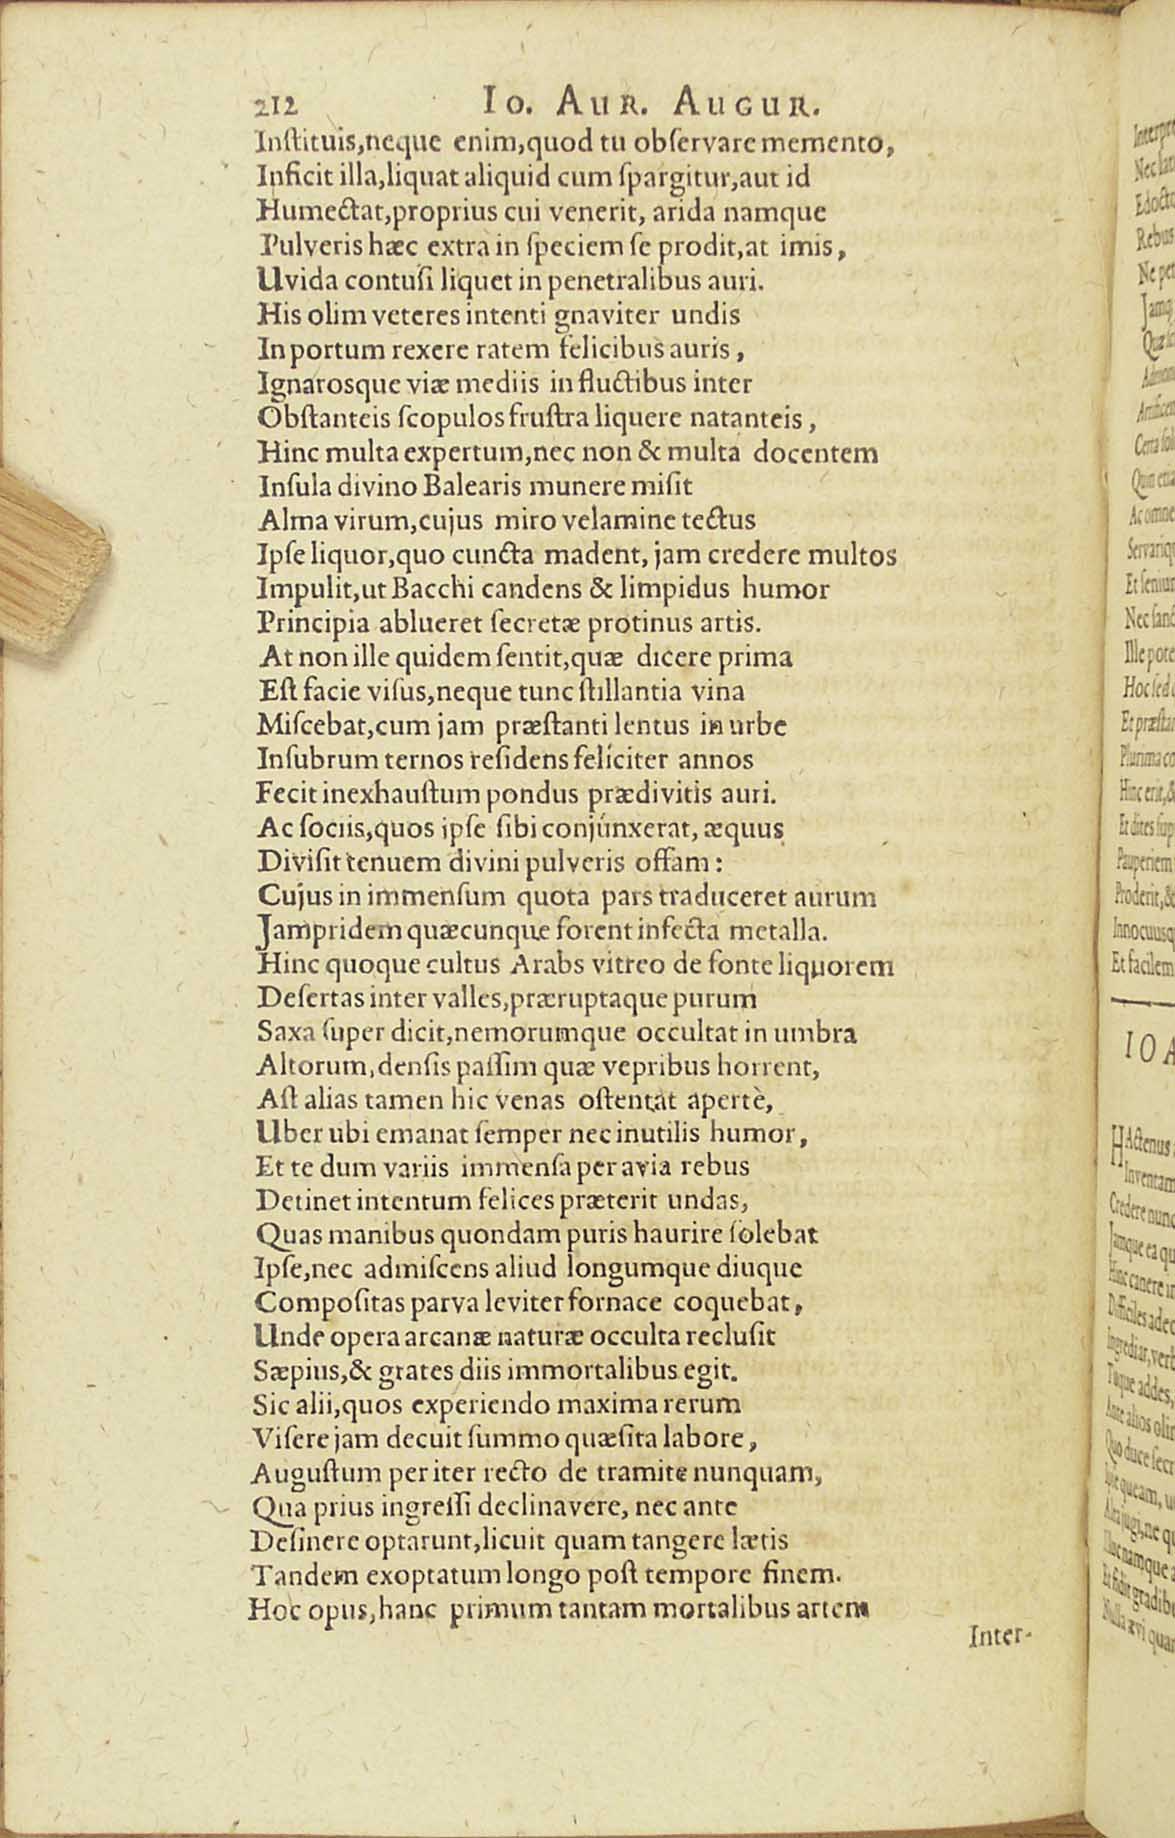 212 Io. Aur. Augur.
Inſtituis,neque enim,quod tu obſervare memento,
Inficit illa,liquat aliquid cum ſpargitur,aut id
Humectat,proprius cui venerit, arida namque
Pulveris hæc extra in ſpeciem ſe prodit,at imis,
Uvida contuſi liquet in penetralibus auri.
His olim veteres intenti gnaviter undis
In portum rexere ratem felicibus auris,
Ignarosque viæ mediis in fluctibus inter
Obſtanteis ſcopulos fruſtra liquere natanteis,
Hinc multa expertum,nec non & multa docentem
Inſula divino Balearis munere miſit
Alma virum,cujus miro velamine tectus
Ipſe liquor,quo cuncta madent, jam credere multos
Impulit,ut Bacchi candens & limpidus humor
Principia ablueret ſecretæ protinus artis.
At non ille quidem ſentit,quæ dicere prima
Eſt facie viſus,neque tunc ſtillantia vina
Miſcebat,cum jam præſtanti lentus in urbe
Inſubrum ternos reſidens feliciter annos
Fecit inexhauſtum pondus prædivitis auri.
Ac ſociis,quos ipſe ſibi conjúnxerat, æquus
Diviſit tenuem divini pulveris offam:
Cujus in immenſum quota pars traduceret aurum
Jampridem quæcunque forent infecta metalla.
Hinc quoque cultus Arabs vitreo de fonte liquorem
Deſertas inter valles,præruptaque purum
Saxa ſuper dicit,nemorumque occultat in umbra
Altorum,denſis paſſim quæ vepribus horrent,
Aſt alias tamen hic venas oſtentat apertè,
Uber ubi emanat ſemper nec inutilis humor,
Et te dum variis immenſa per avia rebus
Detinet intentum felices præterit undas,
Quas manibus quondam puris haurire ſolebat
Ipſe,nec admiſcens aliud longumque diuque
Compoſitas parva leviter fornace coquebat,
Unde opera arcanæ naturæ occulta recluſit
Sæpius,& grates diis immortalibus egit.
Sic alii,quos experiendo maxima rerum
Viſere jam decuit ſummo quæſita labore,
Auguſtum per iter recto de tramite nunquam,
Qua prius ingreſſi declinavere, nec ante
Deſinere optarunt,licuit quam tangere lætis
Tandem exoptatum longo poſt tempore finem.
Hoc opus,hanc primum tantam mortalibus artem
Inter-
Interpre
Nec
Edocto
Rebus
Ne per
Jamq
Quæ
Artificem
Certa
Quin etia
Ac omne
Servariq
Et ſeniu
Nec ſanc
Ille pote
Hoc ſed
Et præſta
Plurima co
Hinc erit,&
Et dites ſup
Pauperiem
Proderit,&
Innocuusq
Et facilem
IOA
HActenus
Inventam
Credere nunc
Jamque ea qu
Hinc canere in
Difficiles adeo
Ingrediar,verb
Tuque addes,
Ante alios olim
Quo duce ſecr
queam, u
jugi,ne qu
namque a
Et fidit gradibu
Nulla ævi quam